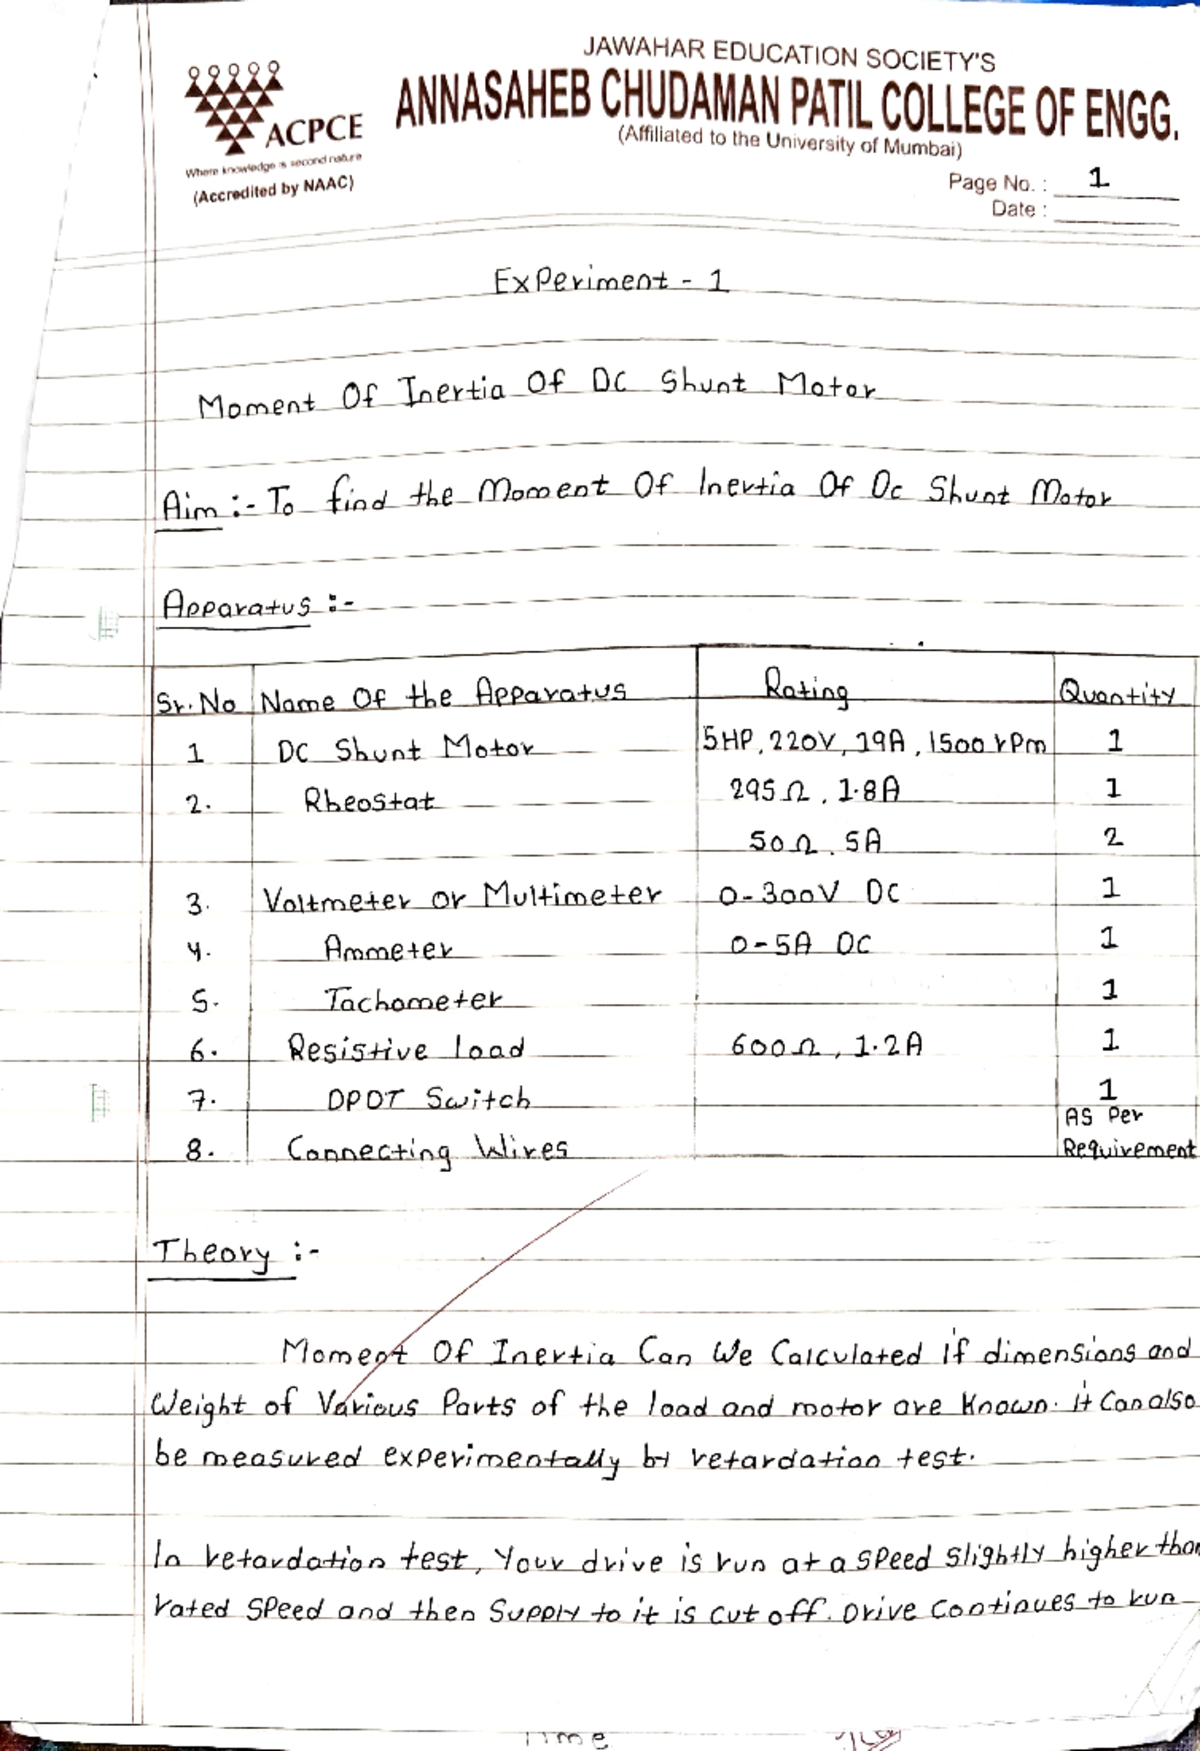 JAWAHAR EDUCATION SOCIETY'S
ANNASAHEB CHUDAMAN PATIL COLLEGE OF ENGG.
(Affiliated to the University of Mumbai)
ACPCE
Where knowledge is second nature
(Accredited by NAAC)
Page No. : 1
Date :
ExPeriment - 1
Moment Of Inertia Of DC Shunt Motor
Aim :- To find the Moment Of Inertia Of Dc Shunt Motor
Apparatus :-
Sr.No Name Of the Apparatus Rating Quantity
1 DC Shunt Motor 5HP, 220V, 19A, 1500 rPm 1
2. Rheostat 295Ω, 1.8A 1
50Ω, 5A 2
3. Voltmeter or Multimeter 0-300V DC 1
4. Ammeter 0-5A DC 1
5. Tachometer 1
6. Resistive load 600Ω, 1.2A 1
7. DPDT Switch 1
8. Connecting Wires AS Per
Requirement
Theory :-
Moment Of Inertia Can We Calculated if dimensions and
Weight of Various Parts of the load and motor are Known. it Can also
be measured experimentally by retardation test.
In retardation test, Your drive is run at a speed slightly higher than
rated speed and then Supply to it is cut off. Drive continues to run
Time